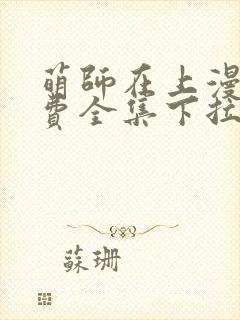 萌師在上漫
費全集下拉
蘇珊